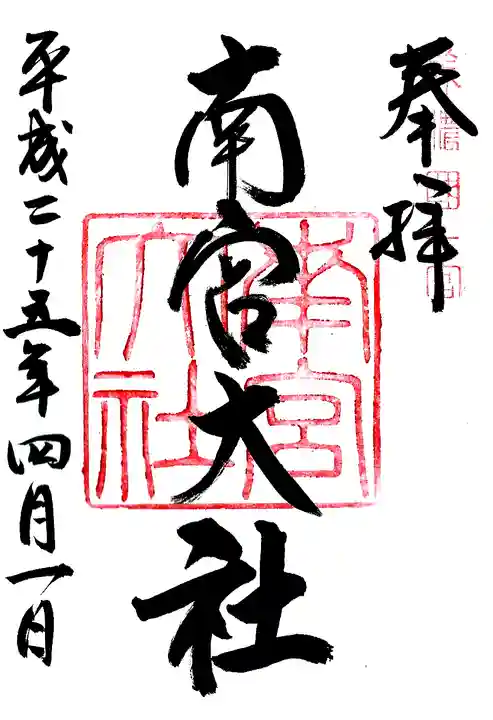 奉拝
南宮大社
平成二十五年四月一日
南宮
大社